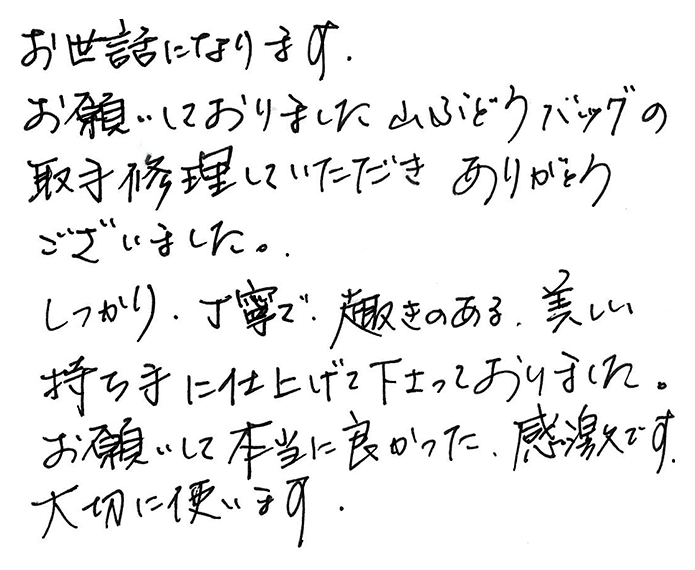 お世話になります.
お願いしておりました山ぶどうバッグの
取手修理していただき ありがとう
ございました。
しっかり、丁寧で、趣きのある、美しい
持ち手に仕上げて下さっておりました。
お願いして本当に良かった、感激です.
大切に使います.